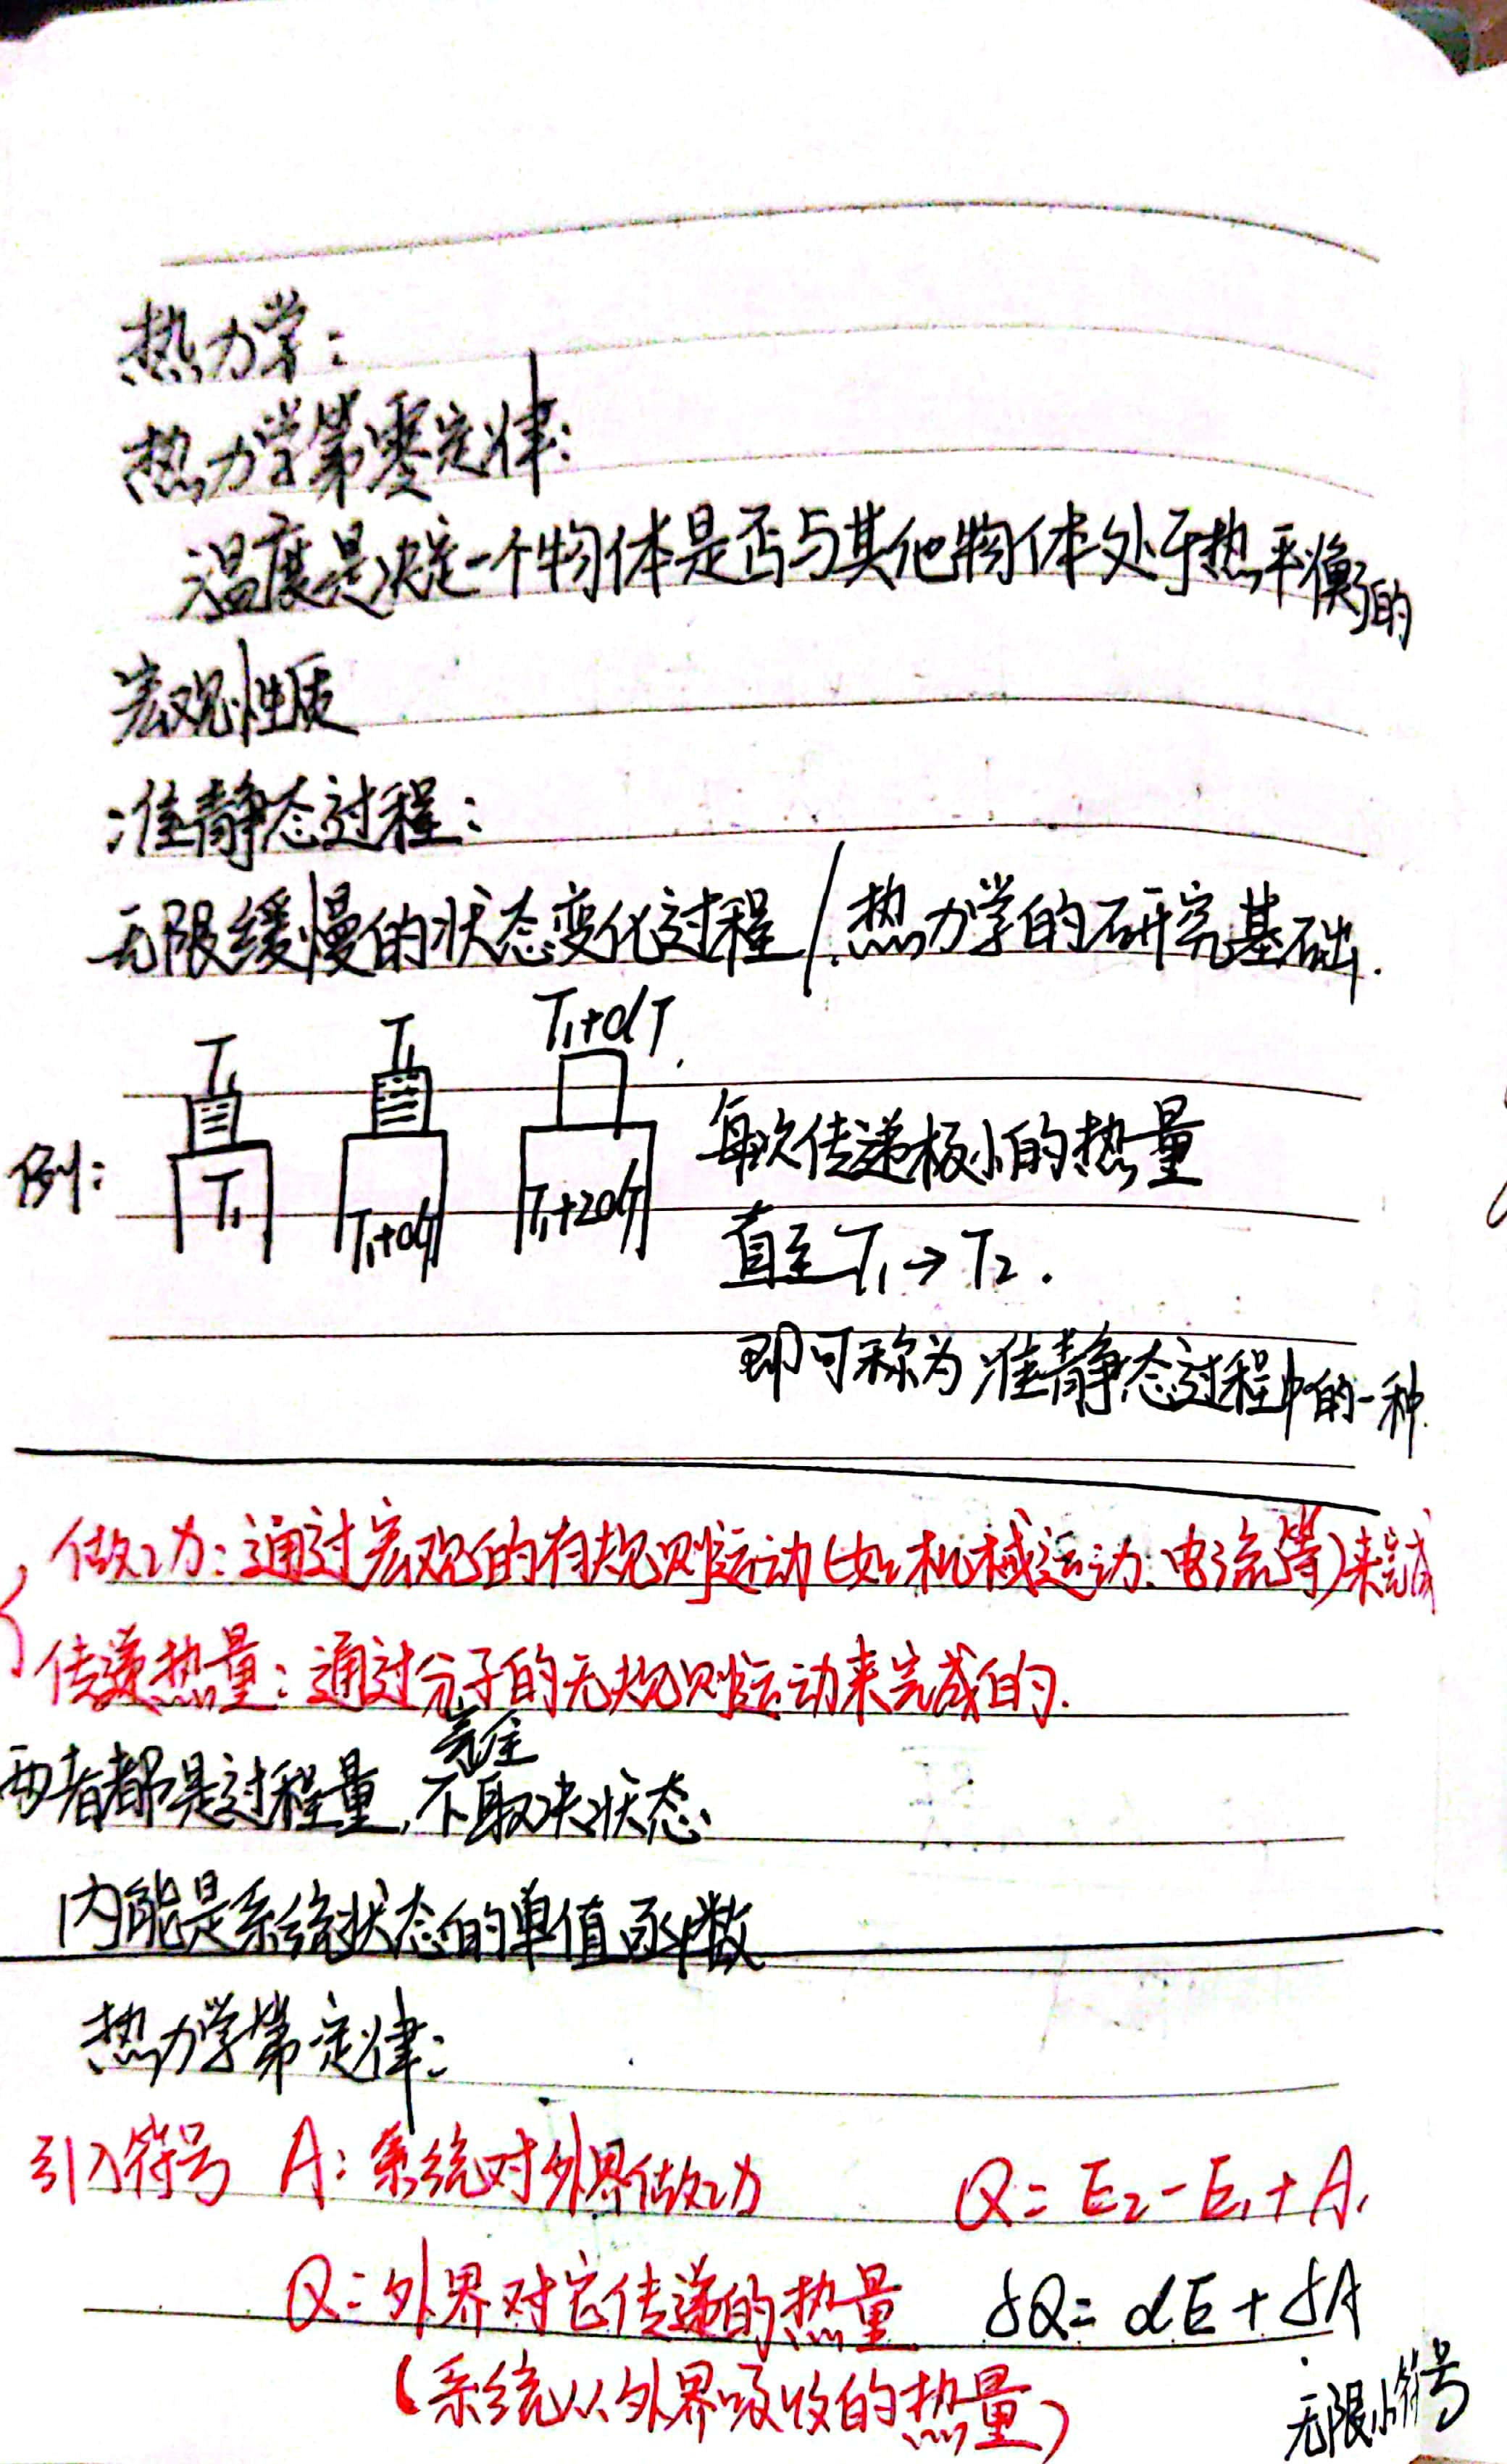 热力学:
热力学第零定律:
温度是决定一个物体是否与其他物体处于热平衡的
宏观性质
准静态过程:
无限缓慢的状态变化过程/.热力学的研究基础.
T₁ T₁ T₁+dT.
例: T₁ T₁+dT T₁+2dT
每次传递极小的热量
直至T₁→T₂.
即可称为准静态过程中的一种.
做功:通过宏观的有规则运动(如机械运动、电流等)来完成
传递热量:通过分子的无规则运动来完成的.
完全
两者都是过程量,不取决状态
内能是系统状态的单值函数
热力学第定律:
引入符号 A:系统对外界做功 Q=E₂-E₁+A.
Q:外界对它传递的热量 δQ=dE+δA
(系统从外界吸收的热量) 无限小符号